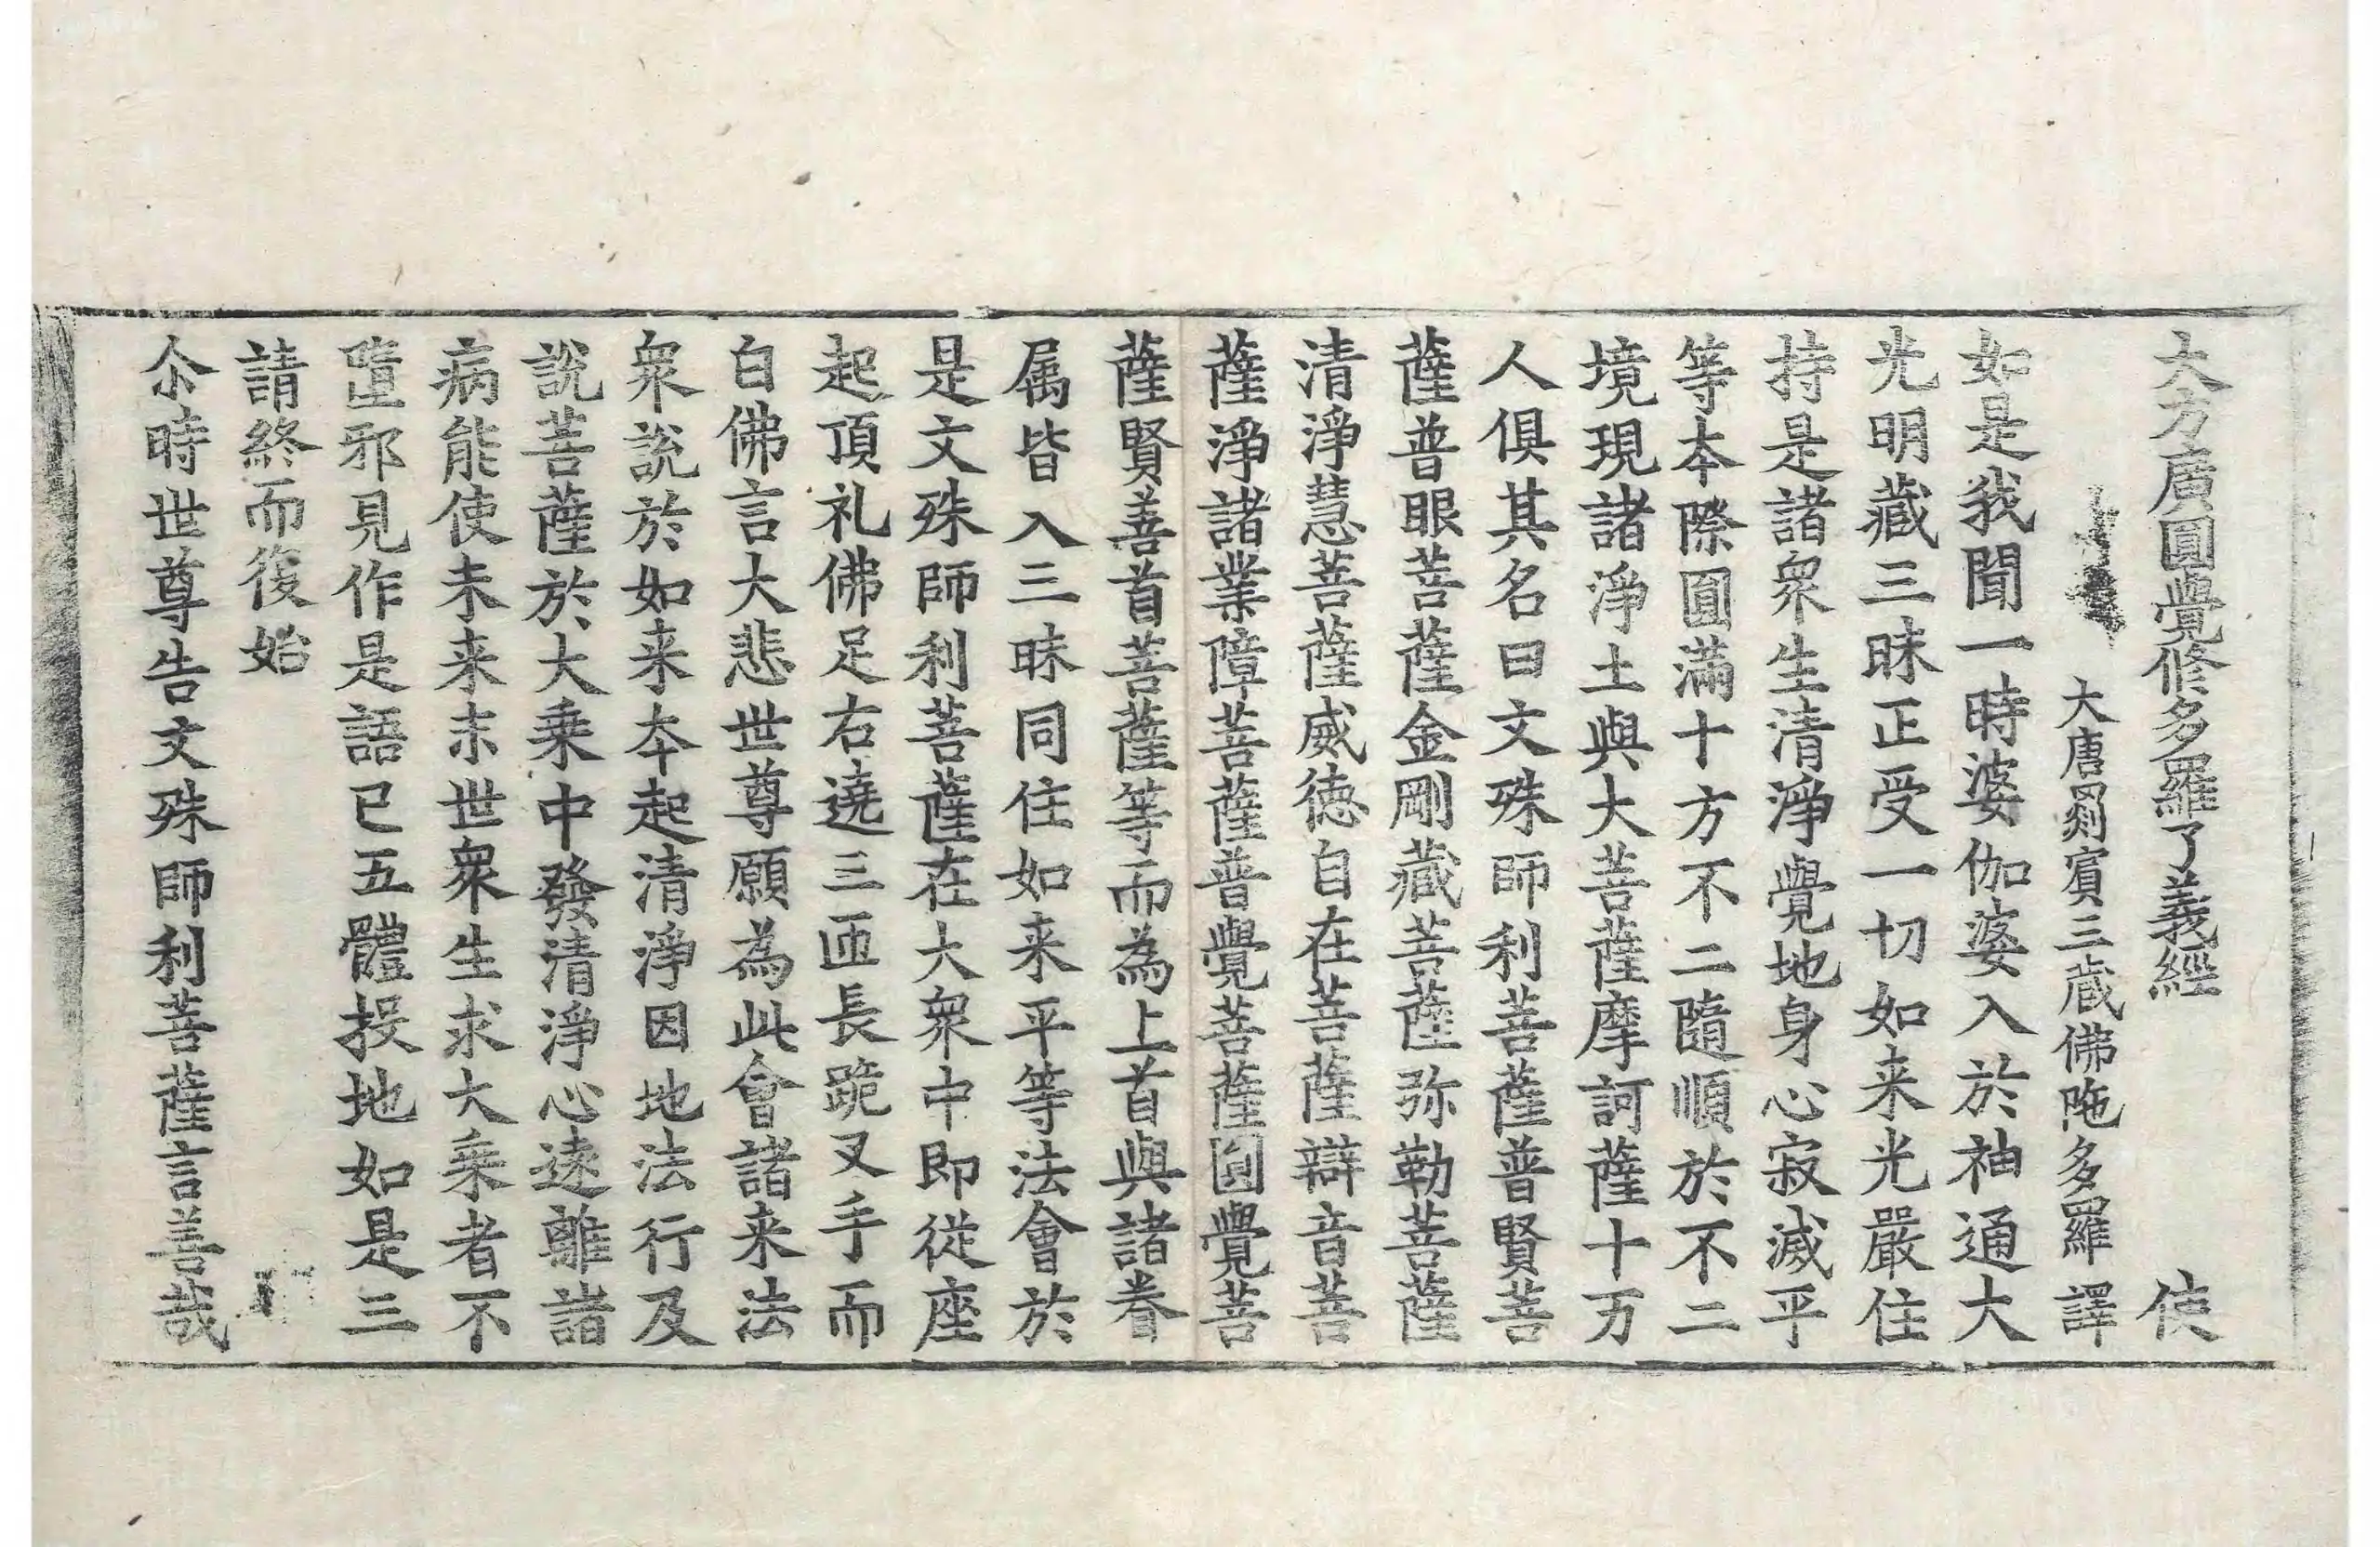 大方廣圓覺修多羅了義經 使
大唐罽賓三蔵佛陁多羅 譯
如是我聞一時婆伽婆入於神通大
光明藏三昧正受一切如来光嚴住
持是諸衆生清淨覺地身心寂滅平
等本際圓滿十方不二隨順於不二
境現諸淨土與大菩薩摩訶薩十万
人俱其名曰文殊師利菩薩普賢菩
薩普眼菩薩金剛藏菩薩弥勒菩薩
清淨慧菩薩威德自在菩薩辯音菩
薩淨諸業障菩薩普覺菩薩圓覺菩
薩賢善首菩薩等而為上首與諸眷
属皆入三昧同住如来平等法會於
是文殊師利菩薩在大衆中即從座
起頂礼佛足右遶三匝長跪叉手而
白佛言大悲世尊願為此會諸来法
衆說於如来本起清淨因地法行及
說菩薩於大乗中發清淨心遠離諸
病能使未来末世衆生求大乗者不
墮邪見作是語已五體投地如是三
請終而復始
尒時世尊告文殊師利菩薩言善哉